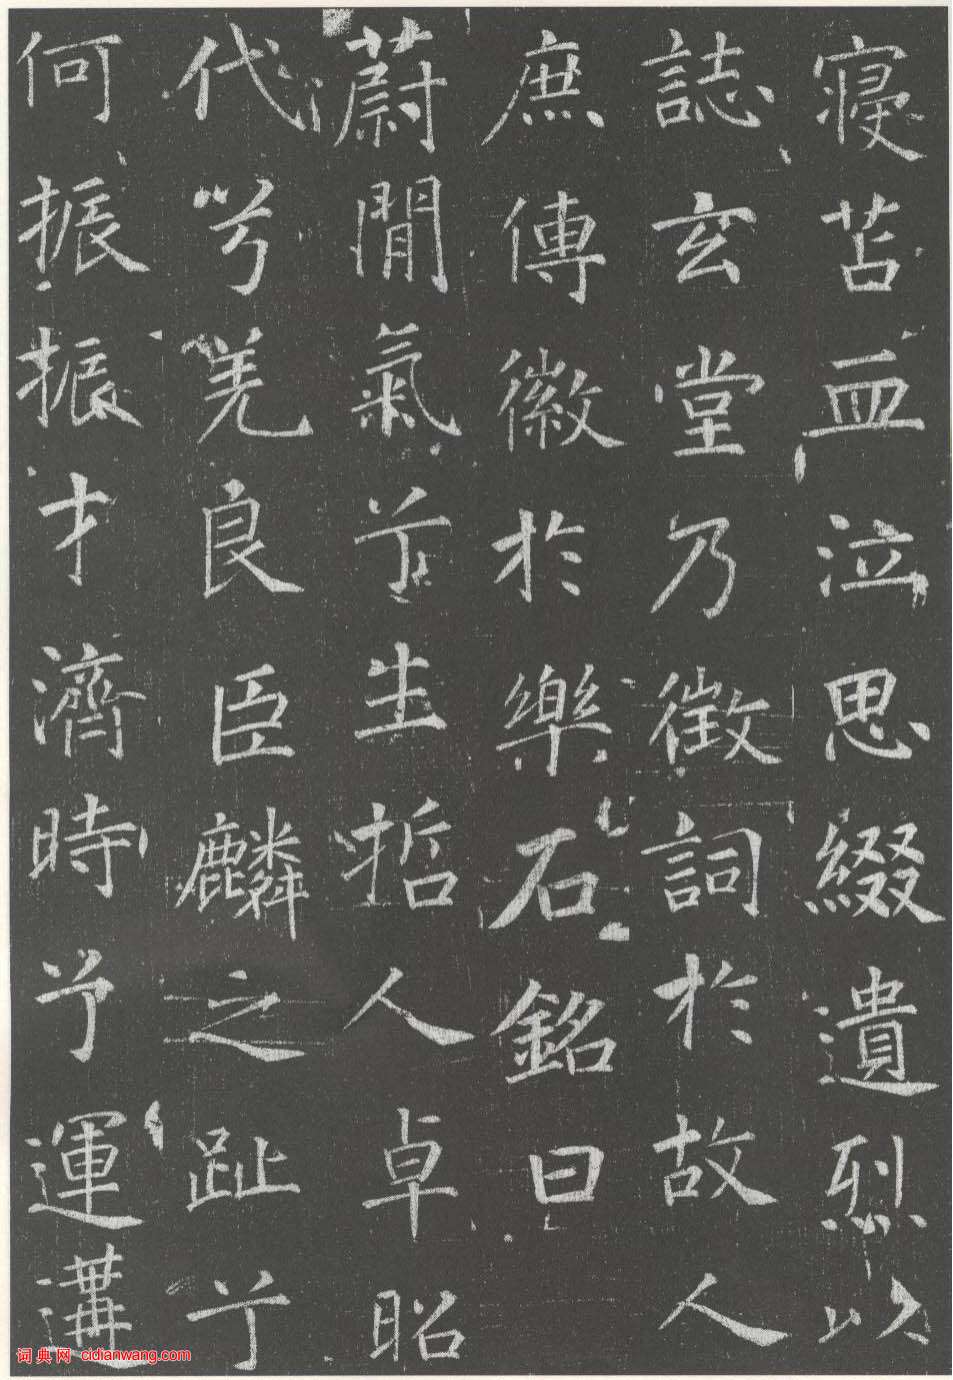 寢苫血泣思綴遺烈以
誌玄堂乃徵詞於故人
庶傳徽於樂石銘曰
蔚閒氣兮生哲人卓昭
代兮羌良臣麟之趾兮
何振振才濟時兮運遘
词典网 cidianwang.com